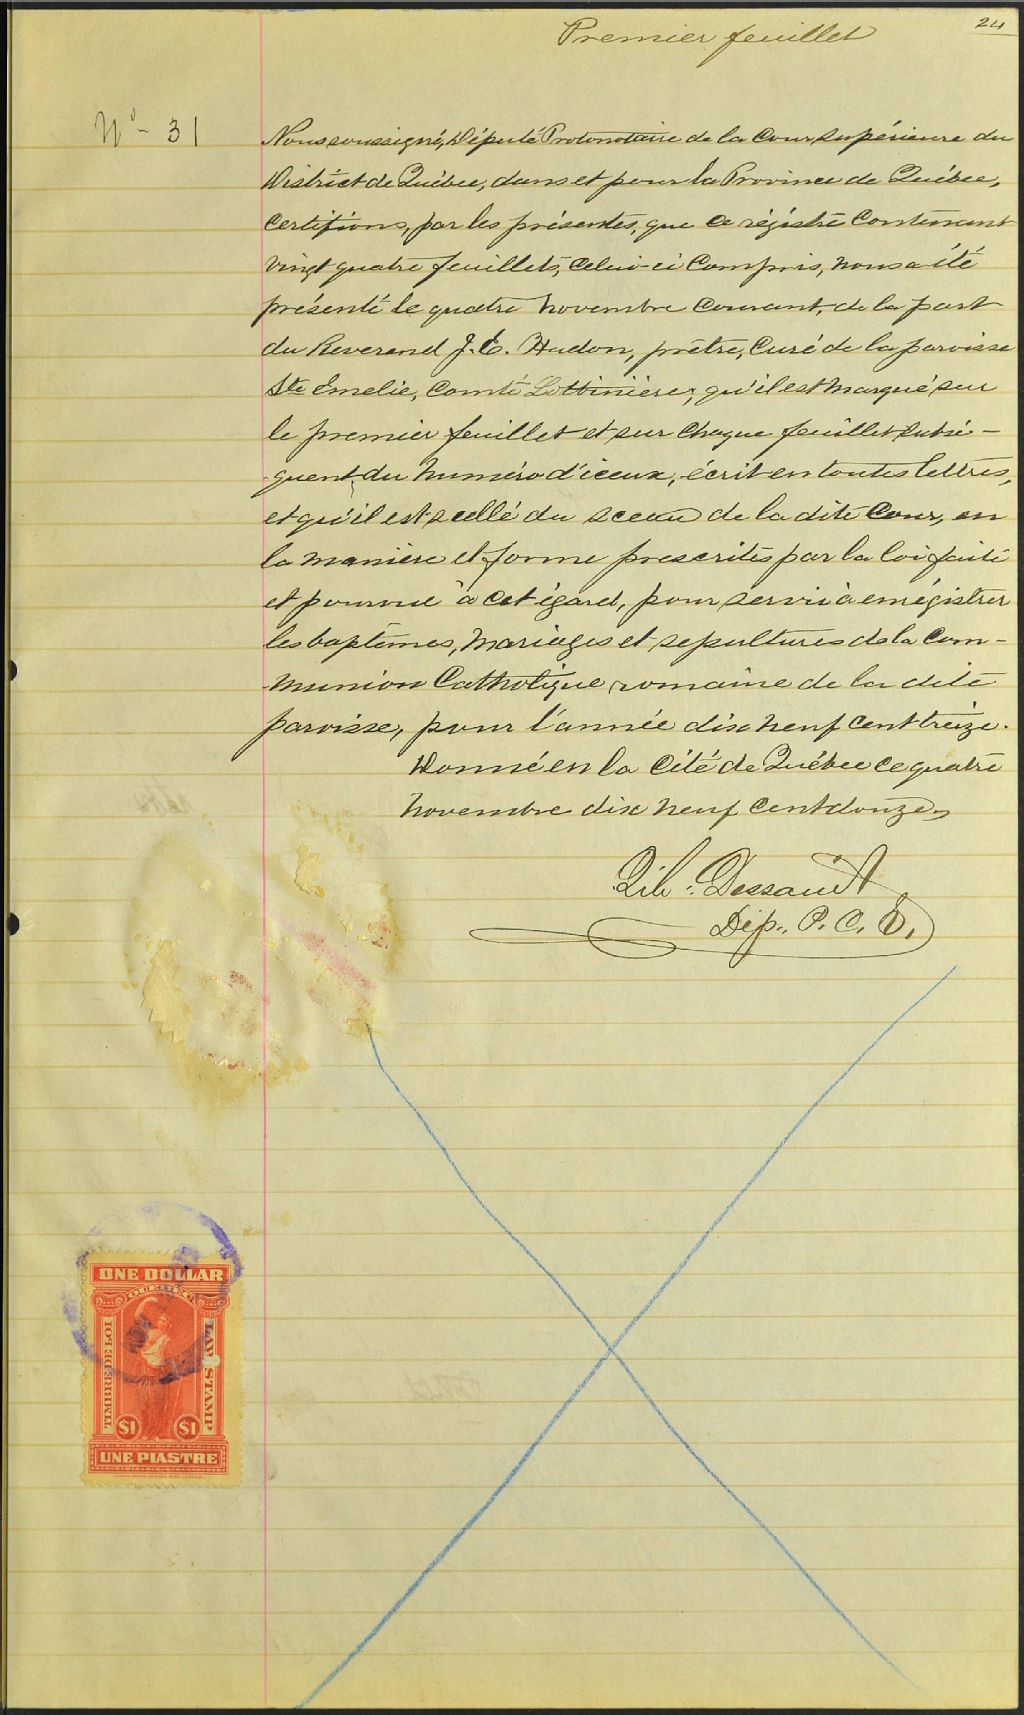 24
Premier feuillet
No- 31
Nous soussigné, Député Protonotaire de la Cour supérieure du
District de Québec, dans et pour la Province de Québec,
certifions, par les présentes, que ce régistre contenant
vingt quatre feuillets, celui-ci compris, nous a été
présenté le quatre novembre courant, de la part
du Reverend J. E. Hudon, prêtre, Curé de la paroisse
Ste Emelie, Comté Lotbinière; qu'il est marqué sur
le premier feuillet et sur chaque feuillet subsé-
quent du numéro d'iceux, écrit en toutes lettres,
et qu'il est scellé du sceau de la dite Cour, en
la manière et forme prescrites par la loi faite
et pourvue à cet égard, pour servir à enrégistrer
les baptêmes, mariages et sepultures de la Com-
munion Catholique romaine de la dite
paroisse, pour l'année dix neuf cent treize.
Donné en la Cité de Québec ce quatre
novembre dix neuf cent douze,
Dép. P. C. S.
ONE DOLLAR
QUEBEC
TIMBRE DE LOI
LAW STAMP
$1 $1
UNE PIASTRE